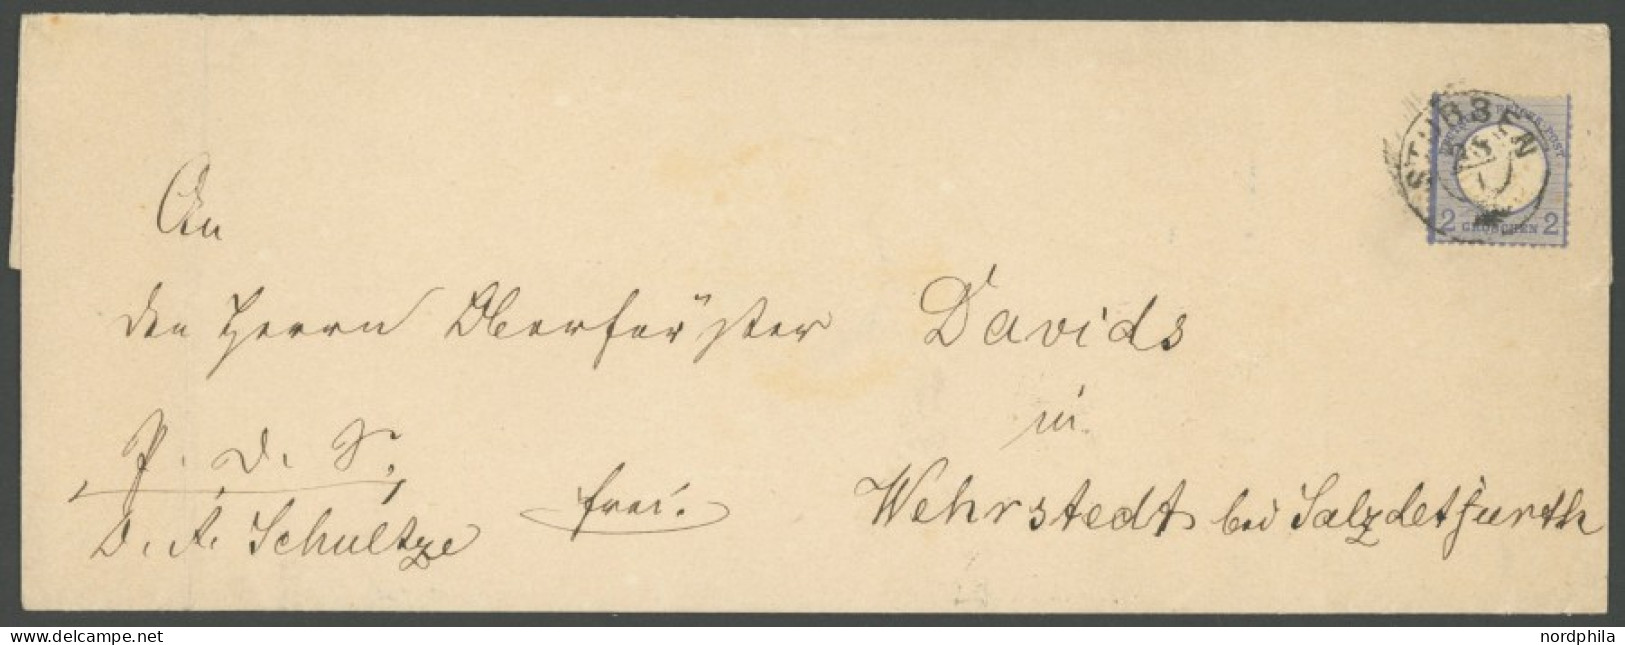 STUBBEN
DEUTSCHE REICHS-POST
2 GROSCHEN 2
An
den Herrn Oberförster Davids
in
Wehrstedt bei Salzdetfurth
P. D. S.
D. A. Schultze
frei.
delcampe.net
nordphila